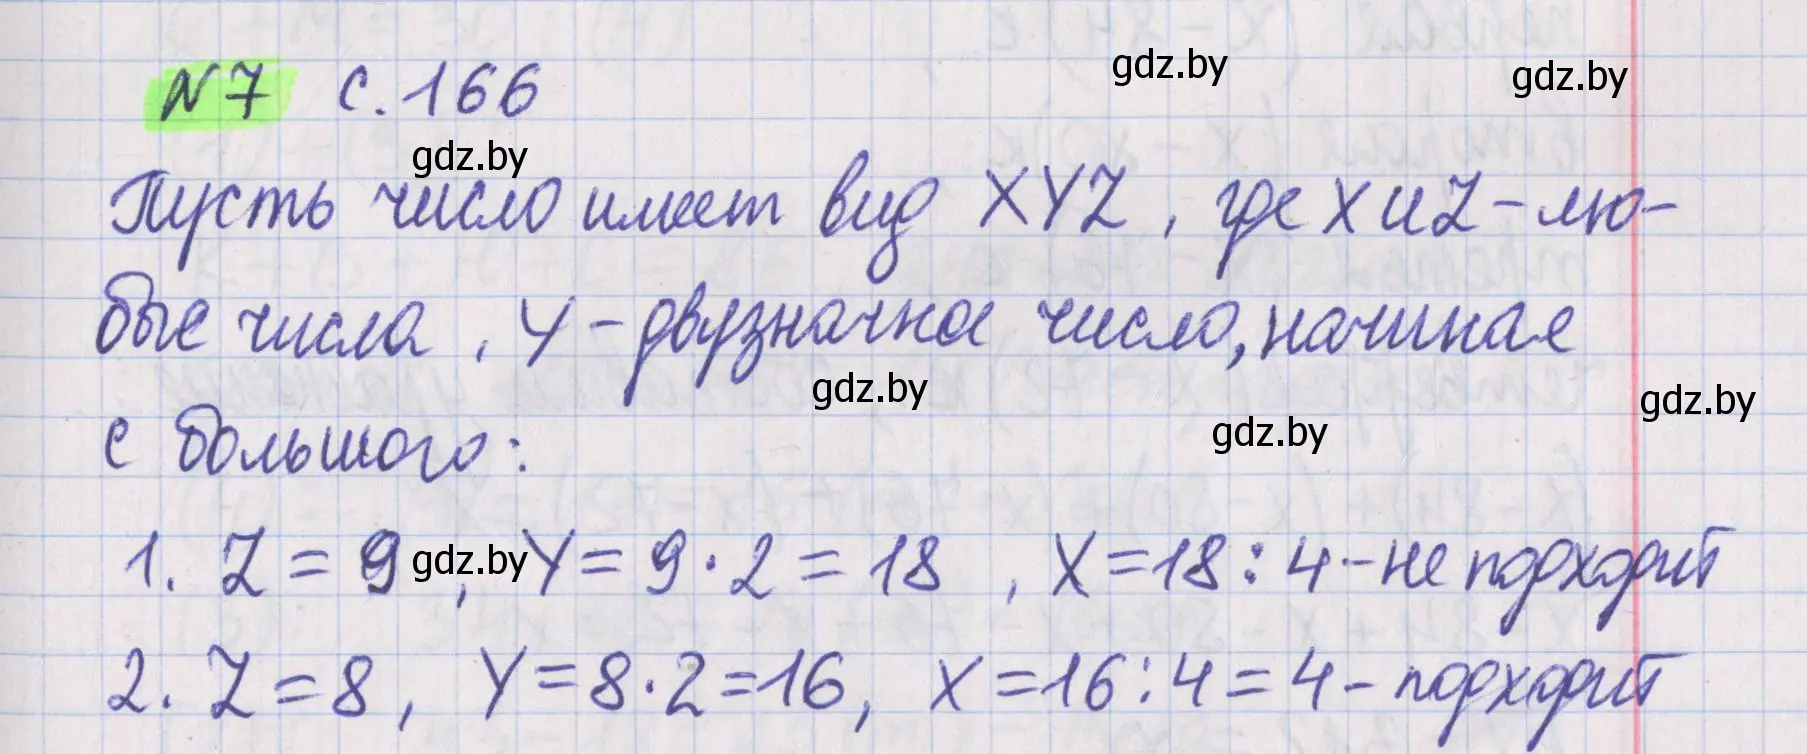 №7 с. 166
Пусть число имеет вид XYZ, где X и Z - лю-
бые числа, Y - двузначное число, начиная
с большого:
1. Z = 9, Y = 9 · 2 = 18, X = 18 : 4 - не подходит
2. Z = 8, Y = 8 · 2 = 16, X = 16 : 4 = 4 - подходит
gdz.by
gdz.by
gdz.by
gdz.by
gdz.by
gdz.by
gdz.by